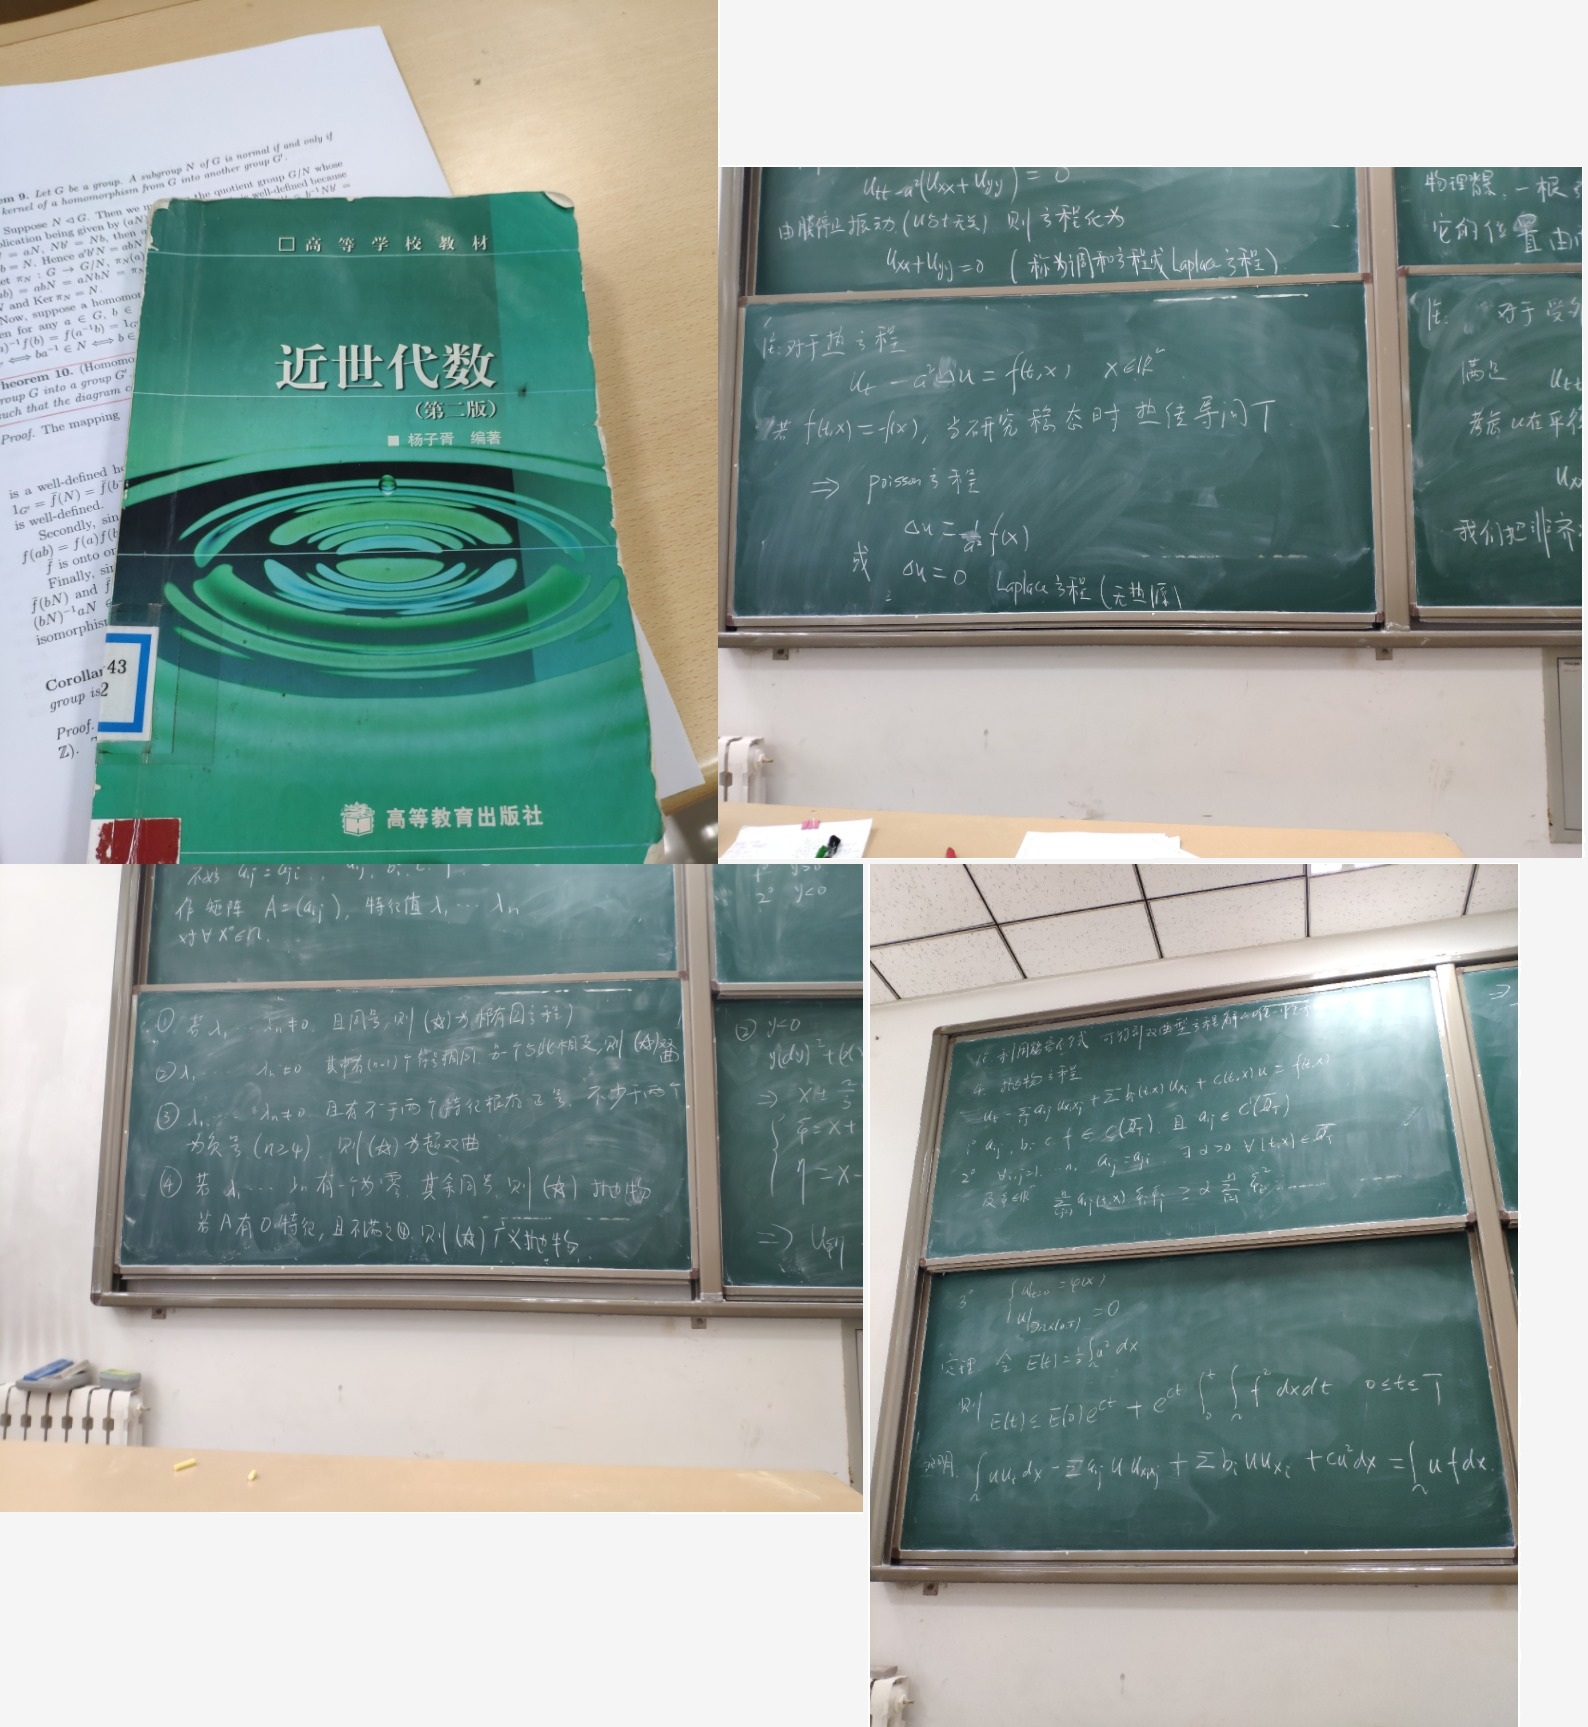 em 9. Let G be a group. A subgroup N of G is normal if and only if
kernel of a homomorphism from G into another group G′.
Suppose N ◁ G. Then we m the quotient group G/N whose
plication being given by (aN) well-defined because
′ = aN, Nb′ = Nb, then a b⁻¹Nb′ =
b = N. Hence a′b′N = abN
et π_N : G → G/N, π_N(a)
ab) = abN = aNbN = π_N
N and Ker π_N = N.
Now, suppose a homomor
en for any a ∈ G, b ∈
a)⁻¹f(b) = f(a⁻¹b) = 1_G′
⟺ ba⁻¹ ∈ N ⟺ b ∈
heorem 10. (Homomo
roup G into a group G′.
such that the diagram c
Proof. The mapping
is a well-defined ho
1_G′ = f̄(N) = f̄(b
is well-defined.
Secondly, sin
f(ab) = f(a)f(b
f̄ is onto or
Finally, sin
f̄(bN) and f̄
(bN)⁻¹aN ∈
isomorphis
Corollar
group is
Proof.
ℤ).
□高等学校教材
近世代数
(第二版)
■ 杨子胥 编著
43
2
高等教育出版社
u_tt -a²(u_xx + u_yy) = 0
由膜停止振动 (u与t无关) 则方程化为
u_xx + u_yy = 0 (称为调和方程或Laplace方程)
注:对于热方程
u_t - a²Δu = f(t,x) x∈ℝⁿ
若 f(t,x) = f(x), 当研究稳态时热传导问T
⇒ poisson方程
Δu = 1/a² f(x)
或 Δu = 0 Laplace方程 (无热源)
一根
它的位置由
注: 对于受
满足 u_tt
考虑u在平
u_xx
我们把非齐
作矩阵 A=(a_ij), 特征值 λ₁ ⋯ λn
对∀x°∈Ω.
① 若 λ₁ ⋯ λn≠0. 且同号,则(☆)为椭圆方程)
② λ₁ ⋯ λn≠0 其中有(n-1)个符号相同 另一个与此相反,则(☆)双曲
③ λ₁ ⋯ λn≠0 且有不少于两个特征根为正号. 不少于两个
为负号 (n≥4). 则(☆)为超双曲
④ 若 λ₁ ⋯ λn 有一个为零. 其余同号. 则(☆) 抛物
若A有0特征, 且不满足④.则(☆)广义抛物.
2° y<0
② y<0
y(dy)²+(d
⇒ x ± 2/3
ξ = x +
η = x -
⇒ u_ξη
4. 抛物方程
u_t - Σ a_ij u_xixj + Σ b_i(t,x) u_xi + c(t,x) u = f(t,x)
1° a_ij, b_i c f ∈ C(Q̄_T) 且 a_ij ∈ C¹(Q̄_T)
2° ∀i,j=1,⋯n. a_ij = a_ji ∃α>0 ∀(t,x)∈Q̄_T
及 ξ∈ℝⁿ Σ a_ij(t,x) ξ_i ξ_j ≥ α Σ ξ_i²
3° { u|_t=0 = φ(x)
u|_∂Ω×(0,T) = 0
定理 令 E(t) = 1/2 ∫_Ω u² dx
则 E(t) ≤ E(0)e^ct + e^ct ∫₀^t ∫_Ω f² dxdt 0≤t≤T
证明. ∫_Ω uu_t dx - Σ a_ij u u_xixj + Σ b_i u u_xi + cu² dx = ∫_Ω u f dx.